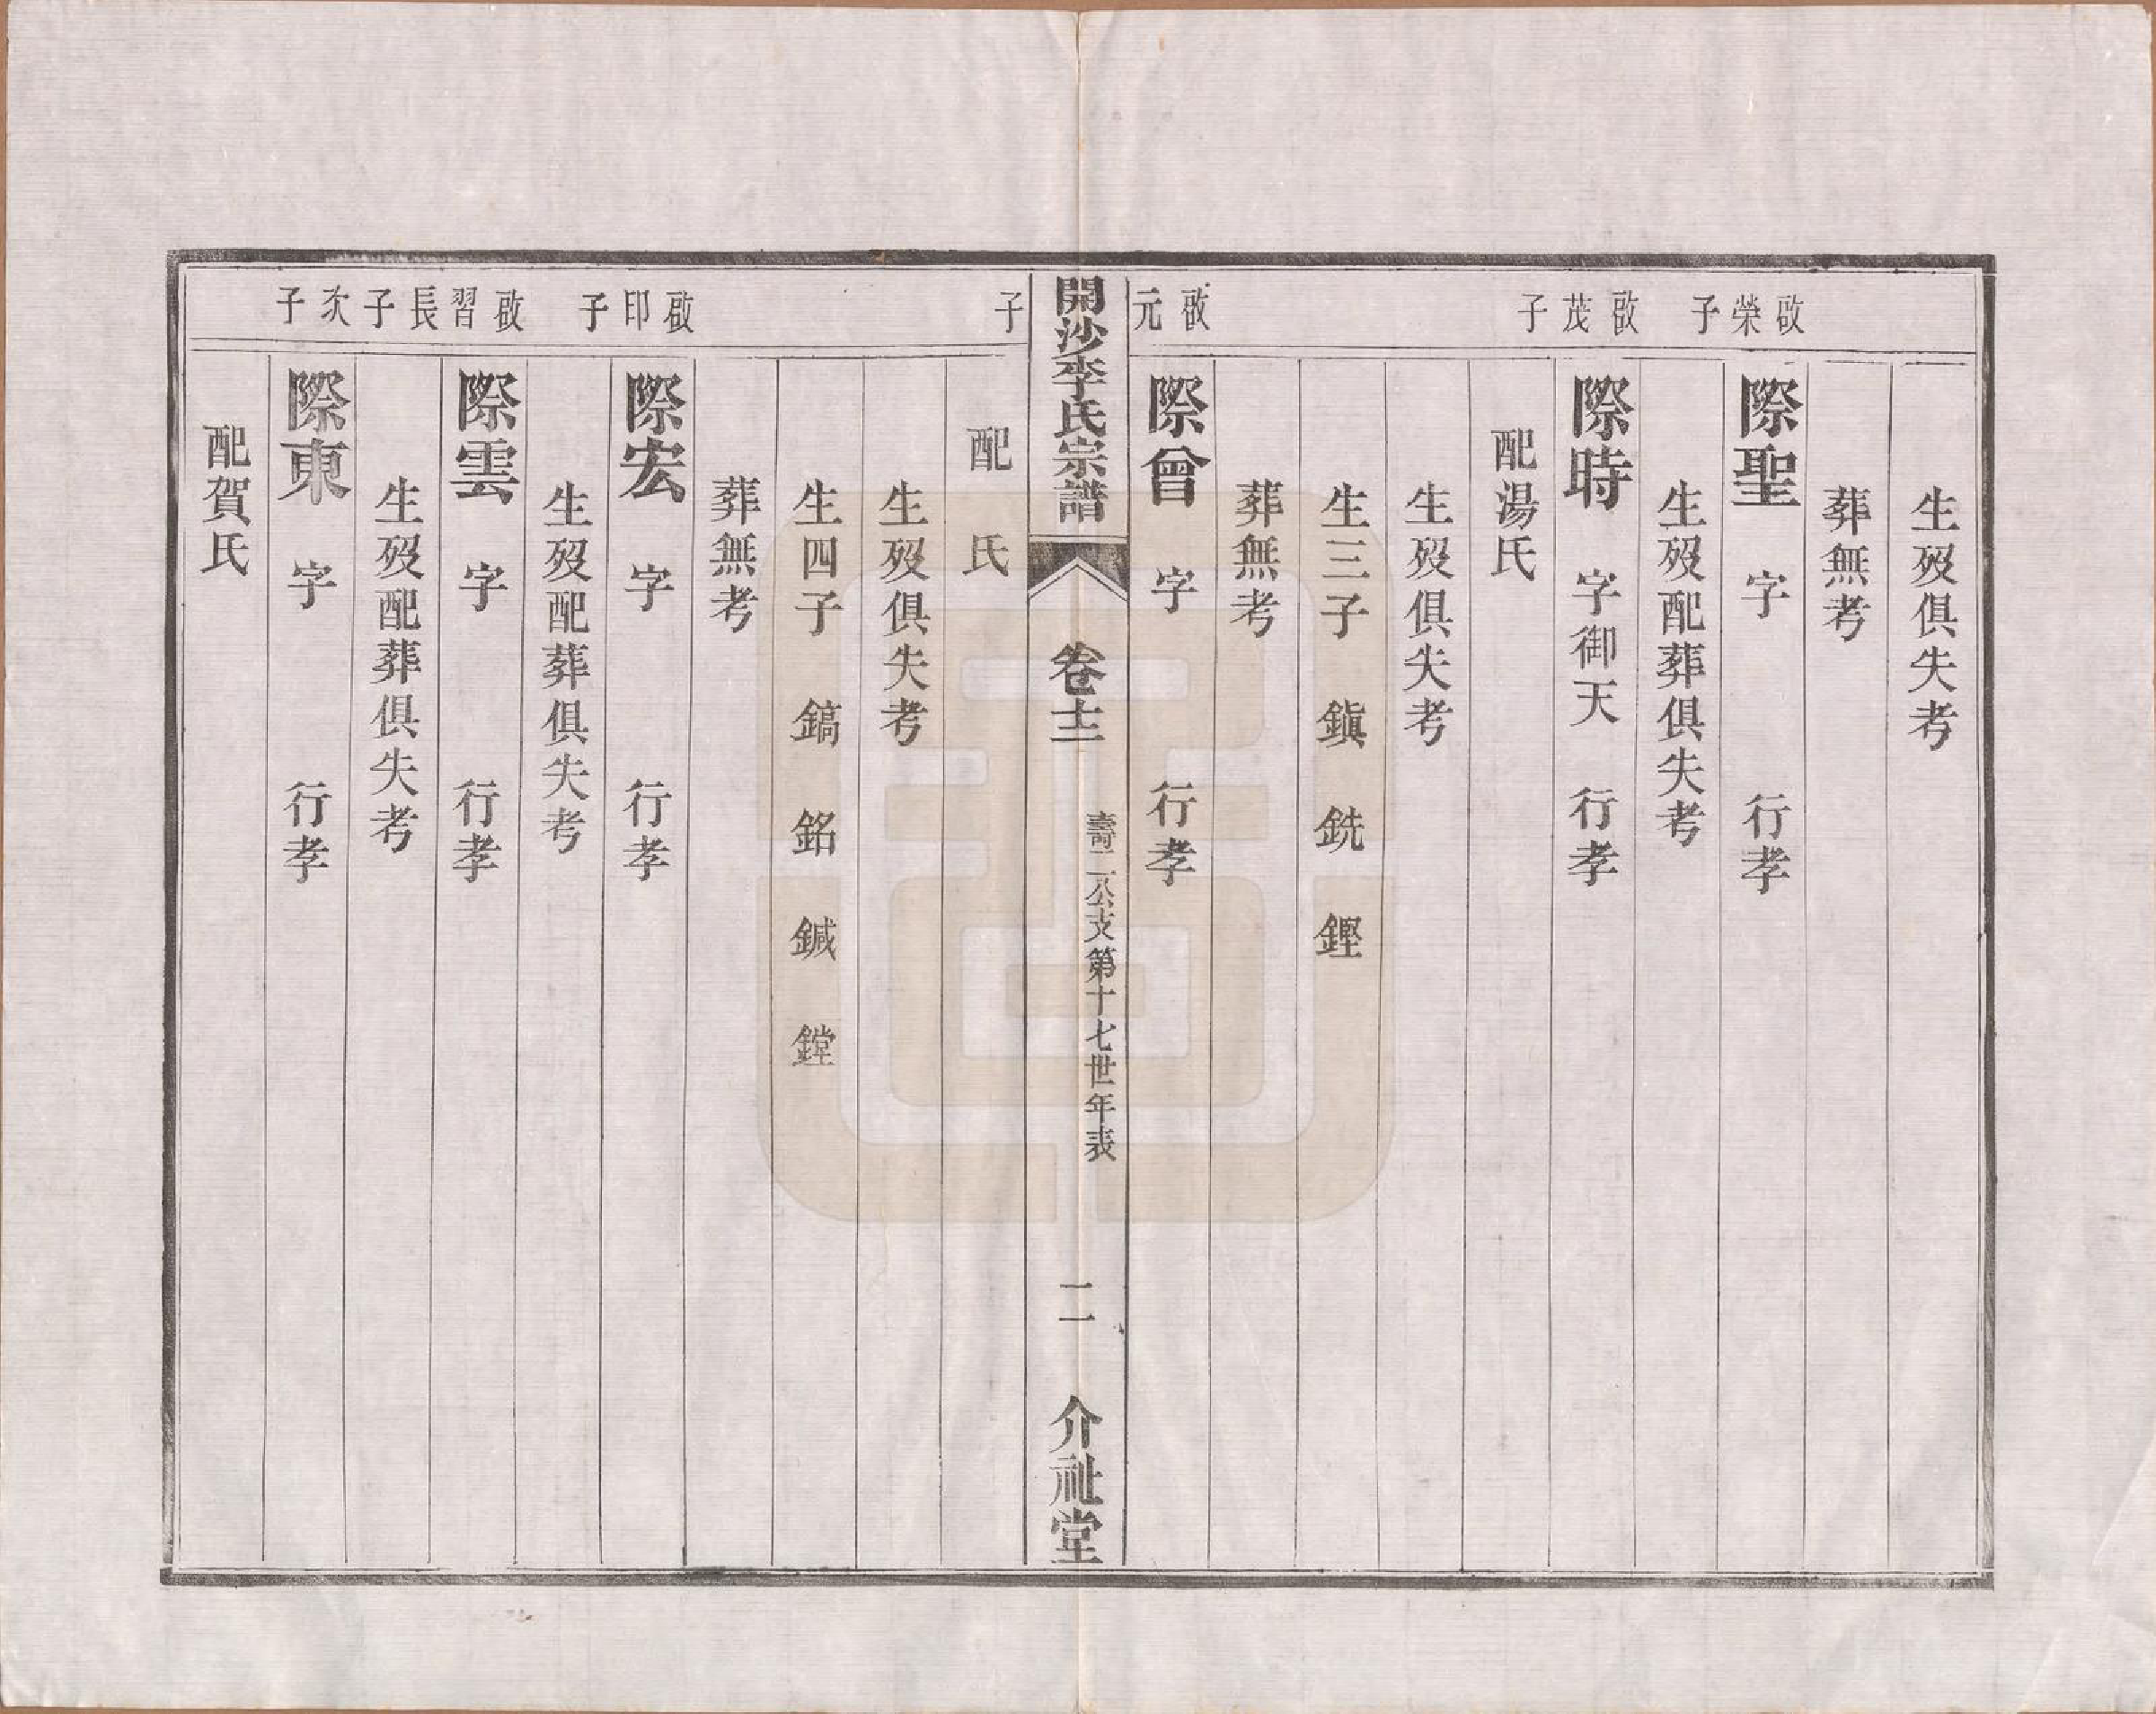 生歿俱失考
葬無考
啟榮子
際聖　字　行孝
生歿配葬俱失考
啟茂子
際時　字御天　行孝
配湯氏
生歿俱失考
生三子　鎭　銑　鏗
葬無考
啟元子
際曾　字　行孝
開沙李氏宗譜　卷十二　壽二公支第十七世年表　二　介祉堂
配　氏
生歿俱失考
生四子　鎬　銘　鍼　鏜
葬無考
啟印子
際宏　字　行孝
生歿配葬俱失考
啟習長子
際雲　字　行孝
生歿配葬俱失考
次子
際東　字　行孝
配賀氏